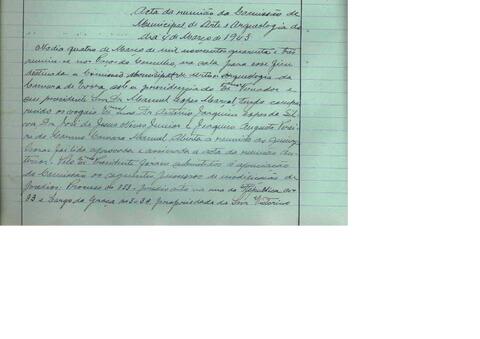 Acta da reunião da Comissão de
Municipal de Arte e Arqueologia do
dia 4 de Março de 1943
No dia quatro de Março de mil novecentos quarenta e três
reuniu-se nos Paços do Concelho, na sala para esse fim
destinada a Comissão Municipal de Arte e Arqueologia da
Camara de Evora, sob a presidencia do Exmo Vereador e
seu presidente Snr. Dr. Manuel Lopes Marçal, tendo compa-
recido os vogais Exmos Dr. António Joaquim Lopes da Sil-
va, Dr. José de Jesus Júnior e Joaquim Augusto
de Camara Manuel. Aberta a reunião ás
horas foi lida aprovada e assinada a acta da reunião an-
terior. Pelo Exmo Presidente foram submetidos á apreciação
da Comissão os seguintes processos de modificação de
predios: Processo nº 133, predio sito na rua da República nº
33 e Largo da Graça nº propriedade do Snr. Vitorino